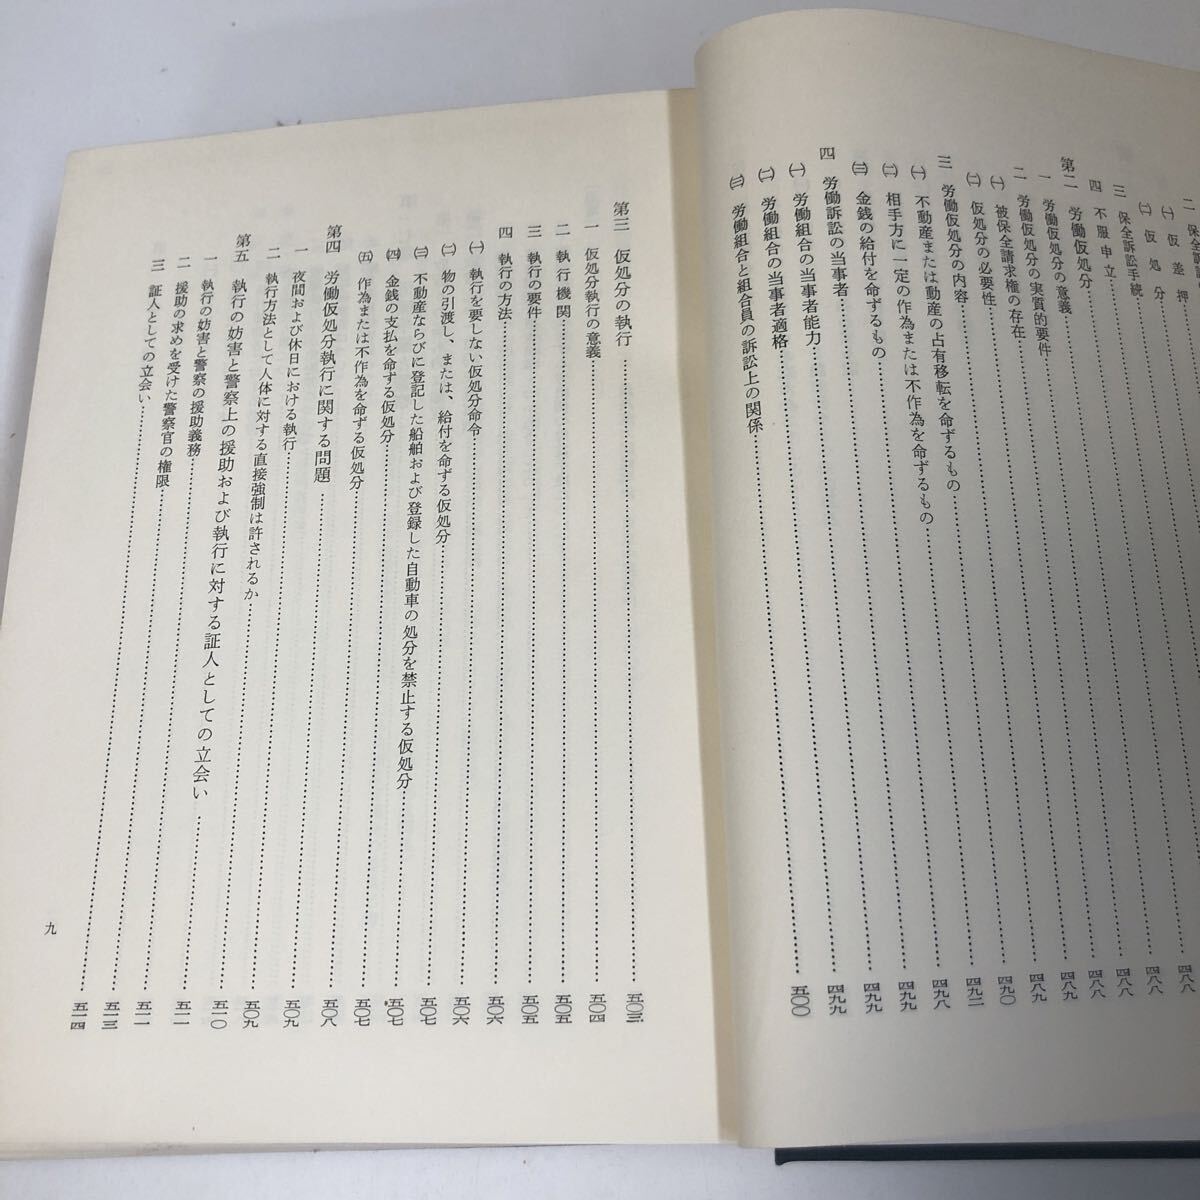 二 保全訴訟の
㈠ 仮差押
㈡ 仮処分
三 保全訴訟手続
四 不服申立
第二 労働仮処分……四八八
一 労働仮処分の意義……四八八
二 労働仮処分の実質的要件……四八八
㈠ 被保全請求権の存在……四八八
㈡ 仮処分の必要性……四八九
三 労働仮処分の内容……四八九
㈠ 不動産または動産の占有移転を命ずるもの……四九〇
㈡ 相手方に一定の作為または不作為を命ずるもの……四九二
㈢ 金銭の給付を命ずるもの……四九八
四 労働訴訟の当事者……四九九
㈠ 労働組合の当事者能力……四九九
㈡ 労働組合の当事者適格……四九九
㈢ 労働組合と組合員の訴訟上の関係……五〇〇
第三 仮処分の執行……五〇三
一 仮処分執行の意義……五〇四
二 執行機関……五〇五
三 執行の要件……五〇五
四 執行の方法……五〇六
㈠ 執行を要しない仮処分命令……五〇六
㈡ 物の引渡し、または、給付を命ずる仮処分……五〇七
㈢ 不動産ならびに登記した船舶および登録した自動車の処分を禁止する仮処分……五〇七
㈣ 金銭の支払を命ずる仮処分……五〇七
㈤ 作為または不作為を命ずる仮処分……五〇八
第四 労働仮処分執行に関する問題……五〇九
一 夜間および休日における執行……五〇九
二 執行方法として人体に対する直接強制は許されるか……五一〇
第五 執行の妨害と警察上の援助および執行に対する証人としての立会い……五一一
一 執行の妨害と警察の援助義務……五一一
二 援助の求めを受けた警察官の権限……五一三
三 証人としての立会い……五一四
九